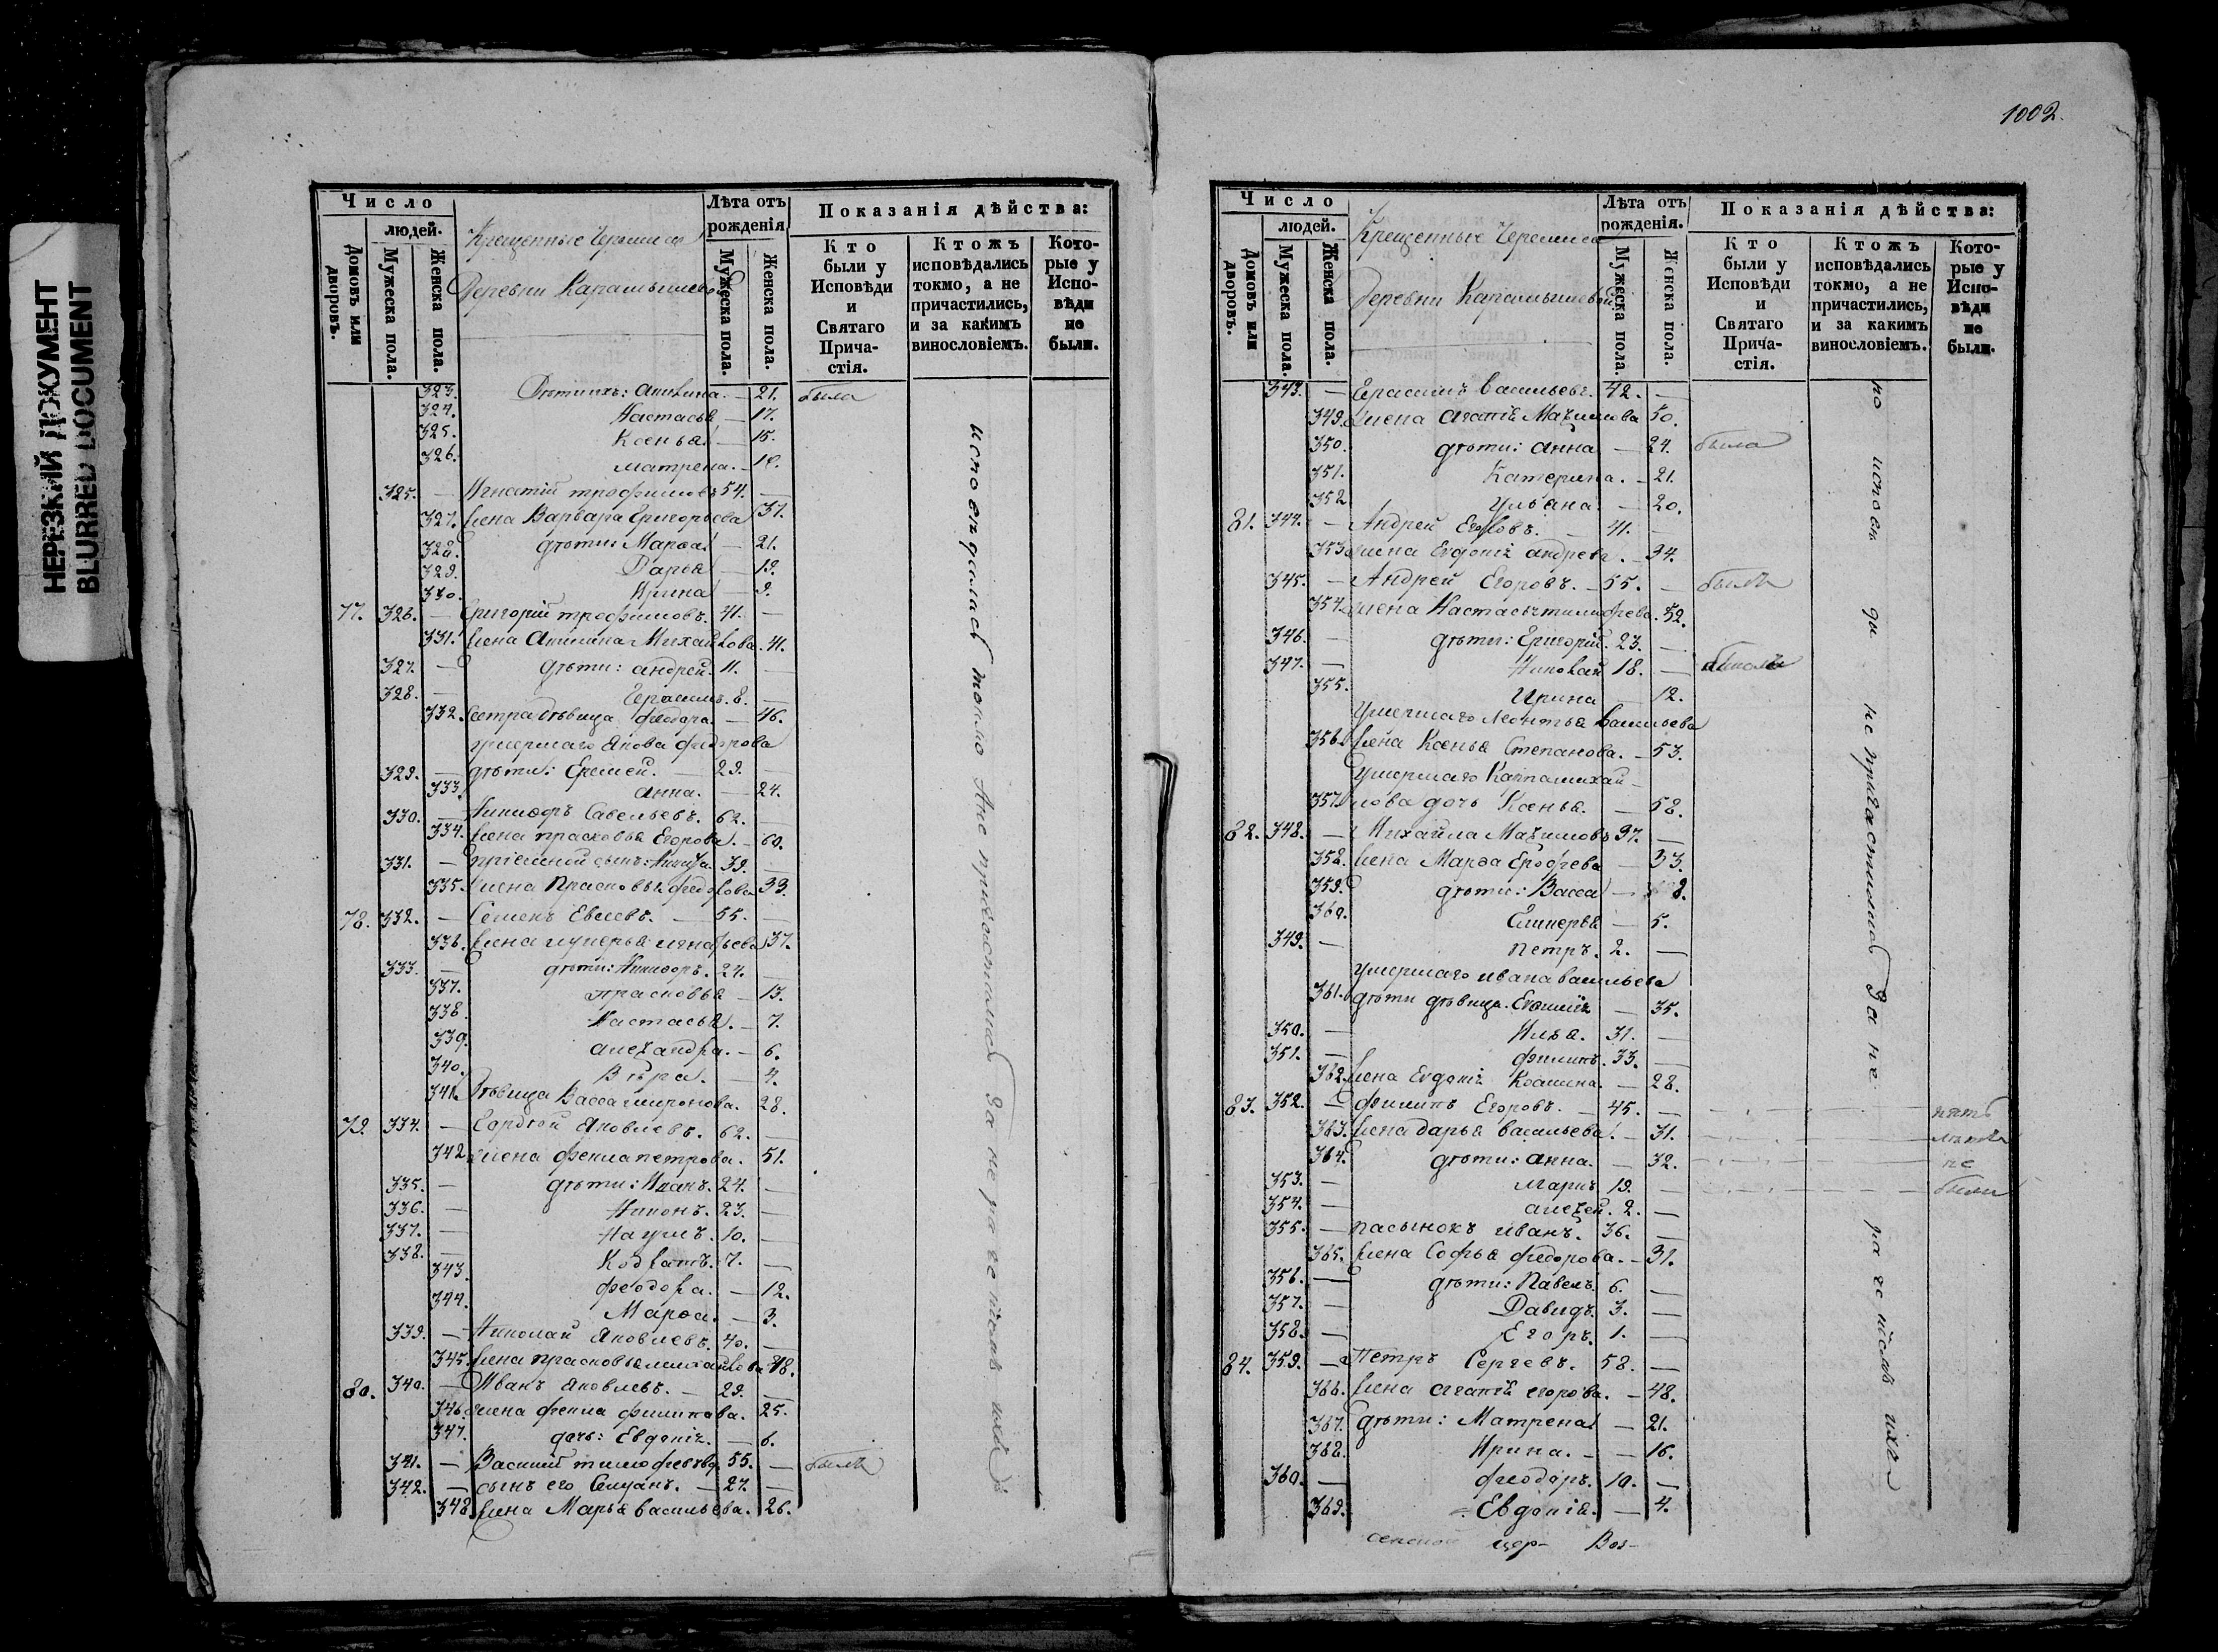 НЕРЕЗКИЙ ДОКУМЕНТ
BLURRED DOCUMENT
Число
людей.
Домовъ или дворовъ.
Мужеска пола.
Женска пола.
Крещенные Черемиса
Деревни Карамышевой
Лѣта отъ рожденія
Мужеска пола.
Женска пола.
Показанія дѣйства:
Кто были у Исповѣди и Святаго Прича-стія.
Ктожъ исповѣдались токмо, а не причастились, и за какимъ винословіемъ.
Кото-рые у Испо-вѣди не были.
323. Дѣти ихъ: Акилина. — 21. была
324. Настасья — 17.
325. Ксенья — 15.
326. Матрена. —
325. — Игнатій трофимовъ 54. —
327. Жена Варвара Григорьева 57.
328. дѣти: Марѳа — 21.
329. Дарья — 19.
330. Ирина — 9.
77. 326. — Григорій трофимовъ. 41. —
331. Жена Акилина Михайлова. 41.
327. — дѣти: андрей. 11. —
328. — Герасимъ. 8. —
332. Сестра дѣвица феодора. — 46.
умершаго Якова федорова
329. — дѣти: Еремей. — 29. —
333. анна. — 24.
330. — Никифоръ Савельевъ. 62. —
334. Жена прасковья Егорова. — 60.
331. — пріемной сынъ: Никита. 39. —
335. Жена Прасковья федорова 33.
78. 332. — Семенъ Евсеевъ. — 55. —
336. Жена лукерья игнатьева 57.
333. — дѣти: Никифоръ. 27. —
337. прасковья — 13.
338. Настасья. — 7.
339. александра. — 6.
340. Вѣра. — 4.
341. Дѣвица Васса миронова. 28.
79. 334. — Гордѣй Яковлевъ. 62. —
342. Жена фекла петрова. 51.
335. — дѣти: Иванъ. 24. —
336. — Никонъ. 23. —
337. — Наумъ. 10. —
338. — Кодратъ. 7. —
343. феодора. — 12.
344. Марѳа. — 3.
339. — Николай Яковлевъ. 40. —
345. Жена прасковья михайлова
80. 340. — Иванъ Яковлевъ. — 29. —
346. Жена фекла филипова. 25.
347. дочь: Евдокія. — 6.
341. — Василій тимофеевъ. 55. — былъ
342. — сынъ его Селуянъ. — 27. —
348. Жена Марья васильева. 26.
исповѣдалась токмо А не причастилась За не раченіемъ ихъ
1002.
Число
людей.
Домовъ или дворовъ.
Мужеска пола.
Женска пола.
Крещенные Черемиса
Деревни Карамышевой
Лѣта отъ рожденія.
Мужеска пола.
Женска пола.
Показанія дѣйства:
Кто были у Исповѣди и Святаго Прича-стія.
Ктожъ исповѣдались токмо, а не причастились, и за какимъ винословіемъ.
Кото-рые у Испо-вѣди не были.
343. — Герасимъ Васильевъ. 42. —
349. Жена агафія Максимова 50.
350. дѣти: анна — 24. была
351. Катерина. — 21.
352. Ульяна — 20.
81. 344. — Андрей Егоровъ. — 41. —
353. Жена Евдокія андреева. — 34.
345. — Андрей Егоровъ. — 55. — былъ
354. Жена Настасья тимофеева. 52.
346. — дѣти: Григорій. 23. —
347. — Николай 18. —
355. Ирина — 12.
Умершаго Леонтья Васильева
356. Жена Ксенья Степанова. — 53.
Умершаго Михай-
357. лова дочь Ксенья. — 58.
82. 348. — Михайла Максимовъ 37. —
358. Жена Марѳа Ерофеева — 33.
359. дѣти: Васса — 8.
360. Гликерья — 5.
349. — петръ. 2. —
умершаго ивана васильева
361. дѣти дѣвица — 35.
350. — Илья. 31. —
351. — филипъ. 33. —
362. Жена Евдокія — 28.
83. 352. — филипъ Егоровъ. — 45. —
363. Жена дарья васильева. — 31.
364. дѣти: анна. — 32. не
353. — 19. — были
354. — алексей. 2. —
355. — пасынокъ иванъ. 36. —
365. Жена Софья федорова. — 31.
356. — дѣти: Павелъ. 6. —
357. — Давидъ. 3. —
358. — Егоръ. 1. —
84. 359. — Петръ Сергеевъ. 58. —
366. Жена агафія егорова. — 48.
367. дѣти: Матрена — 21.
368. Ирина. — 16.
360. — феодоръ. 10. —
369. Евдокія. — 4.
но исповѣди не причастились За не раченіемъ ихъ
цер- Воз-